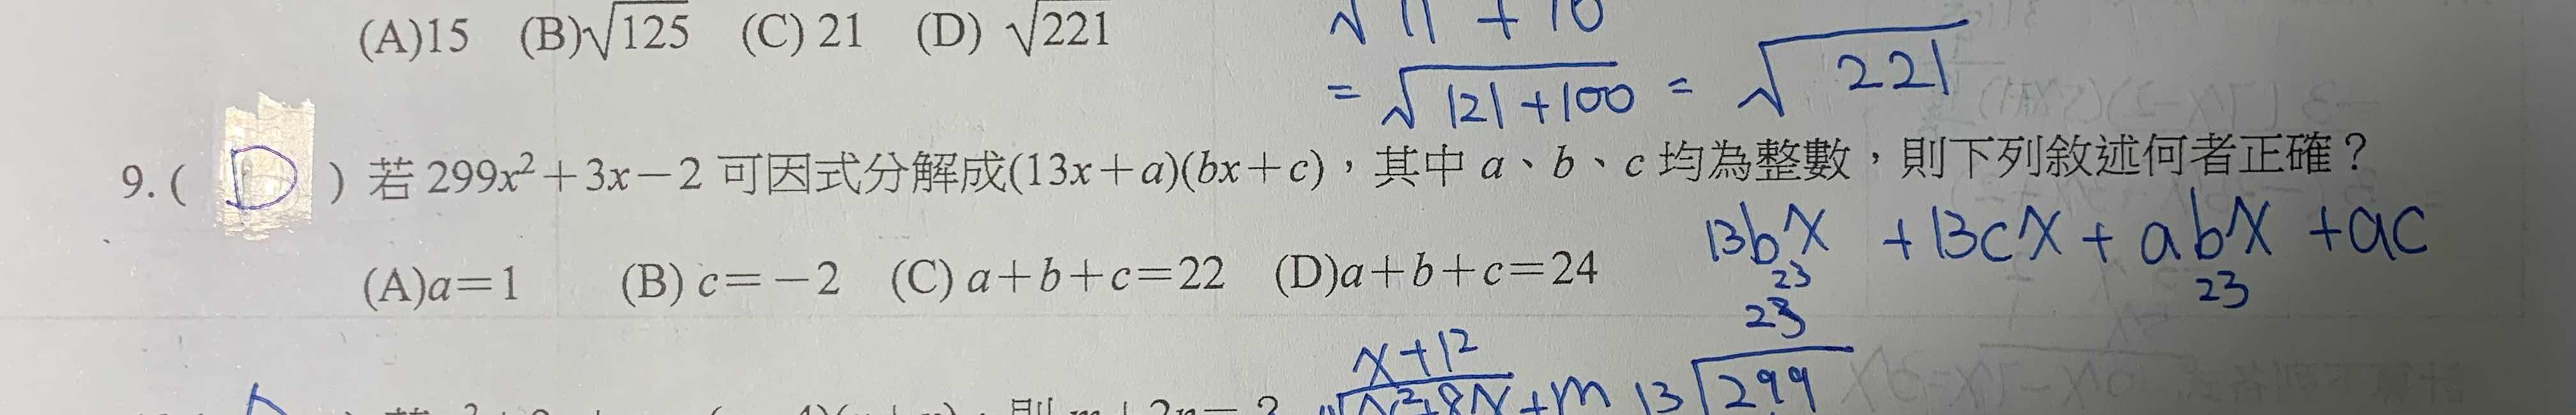 (A)15 (B)√125 (C) 21 (D) √221
√11 + 10
= √121+100 = √221
9. ( D ) 若 299x²+3x−2 可因式分解成(13x+a)(bx+c)，其中 a、b、c 均為整數，則下列敘述何者正確？
(A)a=1 (B) c=−2 (C) a+b+c=22 (D)a+b+c=24
13bx + 13cx + abx + ac
23 23
23
x+12
13 √299